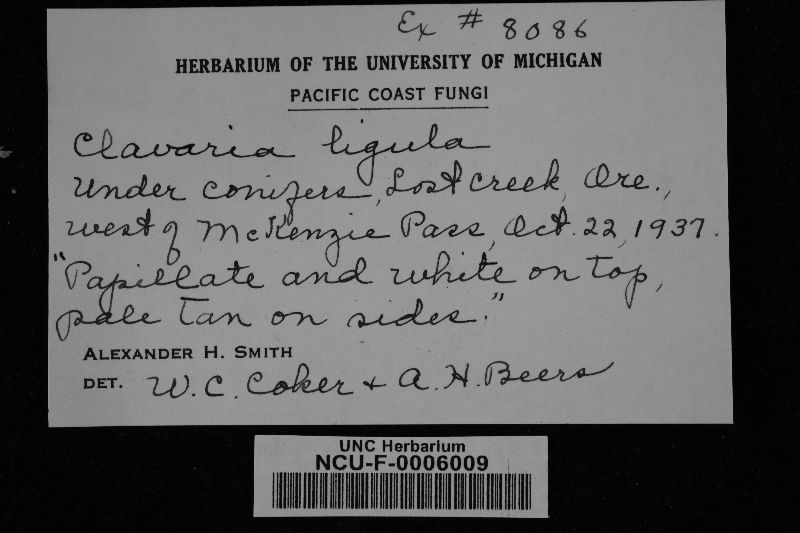 Ex # 8086
HERBARIUM OF THE UNIVERSITY OF MICHIGAN
PACIFIC COAST FUNGI
Clavaria ligula
Under conifers, Lost Creek, Ore.,
west of McKenzie Pass, Oct. 22, 1937.
"Papillate and white on top,
pale tan on sides."
ALEXANDER H. SMITH
DET. W. C. Coker + A. H. Beers
UNC Herbarium
NCU-F-0006009